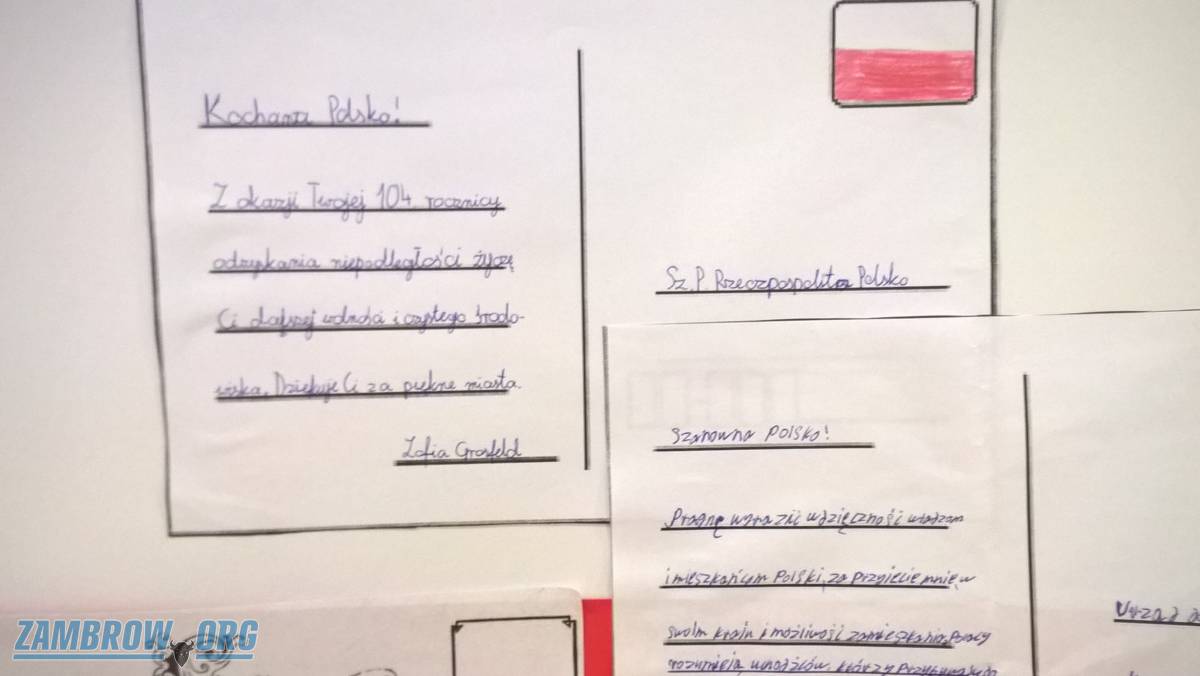 Kochana Polsko!
Z okazji Twojej 104. rocznicy
odzyskania niepodległości życzę
Ci dalszej wolności i czystego środo-
wiska. Dziękuje Ci za piękne miasta.
Zofia Grosfeld
Sz. P. Rzeczpospolita Polska
Szanowna Polsko!
Pragnę wyrazić wdzięczność władzom
i mieszkańcom Polski, za przyjęcie mnie w
swoim kraju i możliwość zamieszkania. Polacy
rozumieją uchodźców, którzy
ZAMBROW.ORG